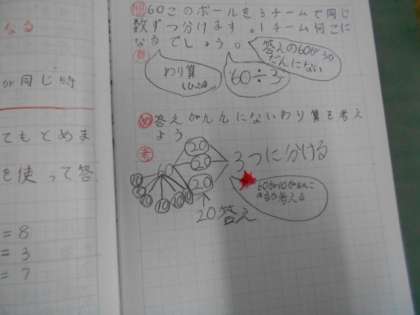 なる
が同じ時
てもとめま
を使って答
= 8
= 3
= 7
問 60このボールを3チームで同じ
数ずつ分けます。1チーム何こに
なるでしょう。
答えの60が3の
だんにない
わり算
60÷3
め 答えが九九にないわり算を考え
よう
考
60
20
20
20
3つに分ける
10
10
10
10
10
10
20 答え